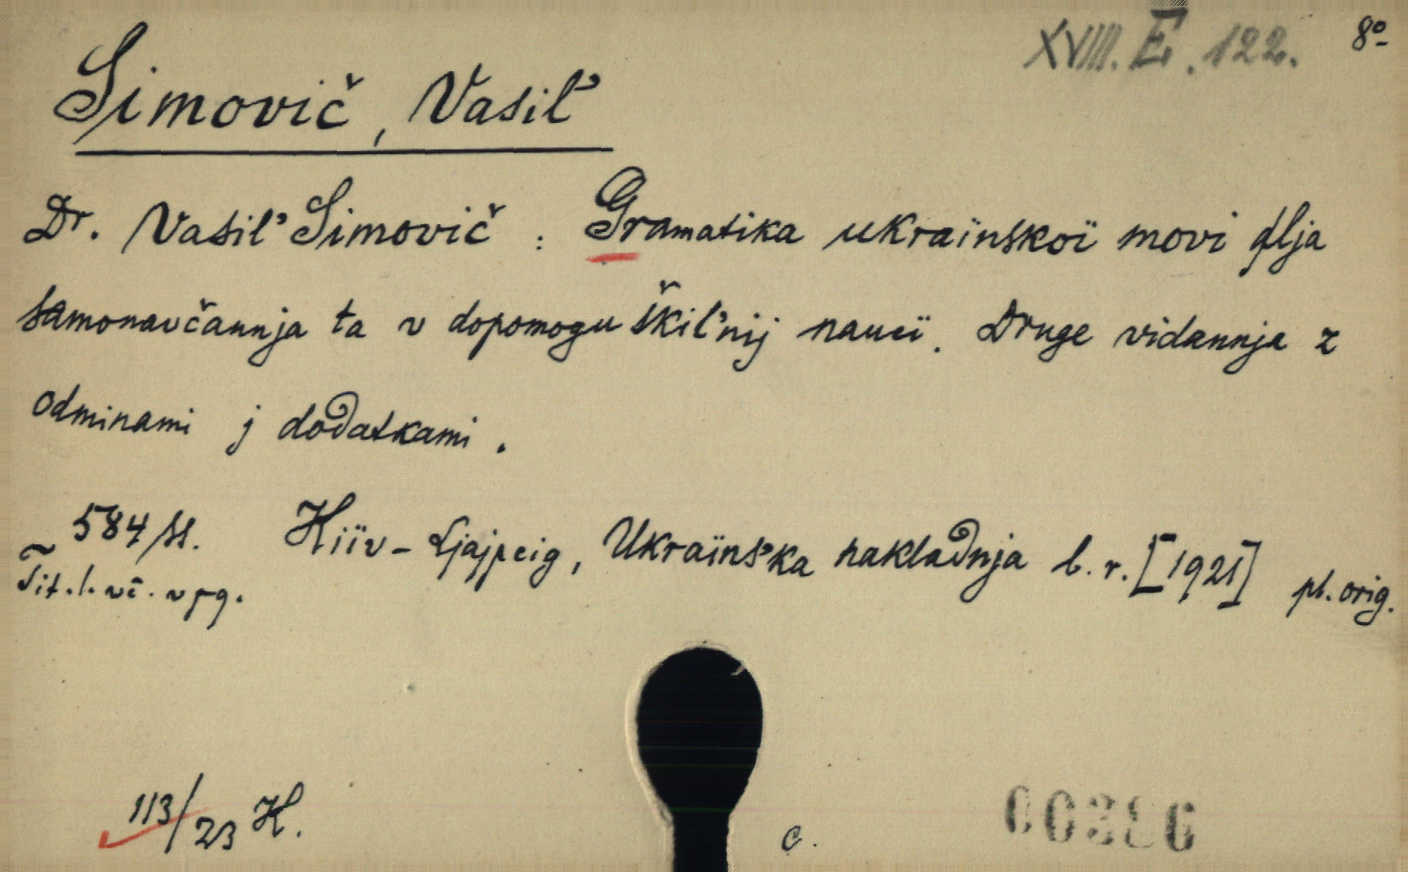 XVIII. E. 122. 8º
Simovič, Vasil'
Dr. Vasil' Simovič : Gramatika ukraïnskoï movi dlja
samonavčannja ta v dopomogu škil'nij naucï. Druge vidannja z
odminami j dodatkami.
584 st. Kiïv - Ljajpcig, Ukraïns'ka nakladnja b. r. [1921] pl. orig.
Tit. l. vč. v pg.
113/23 K.
c.
00386